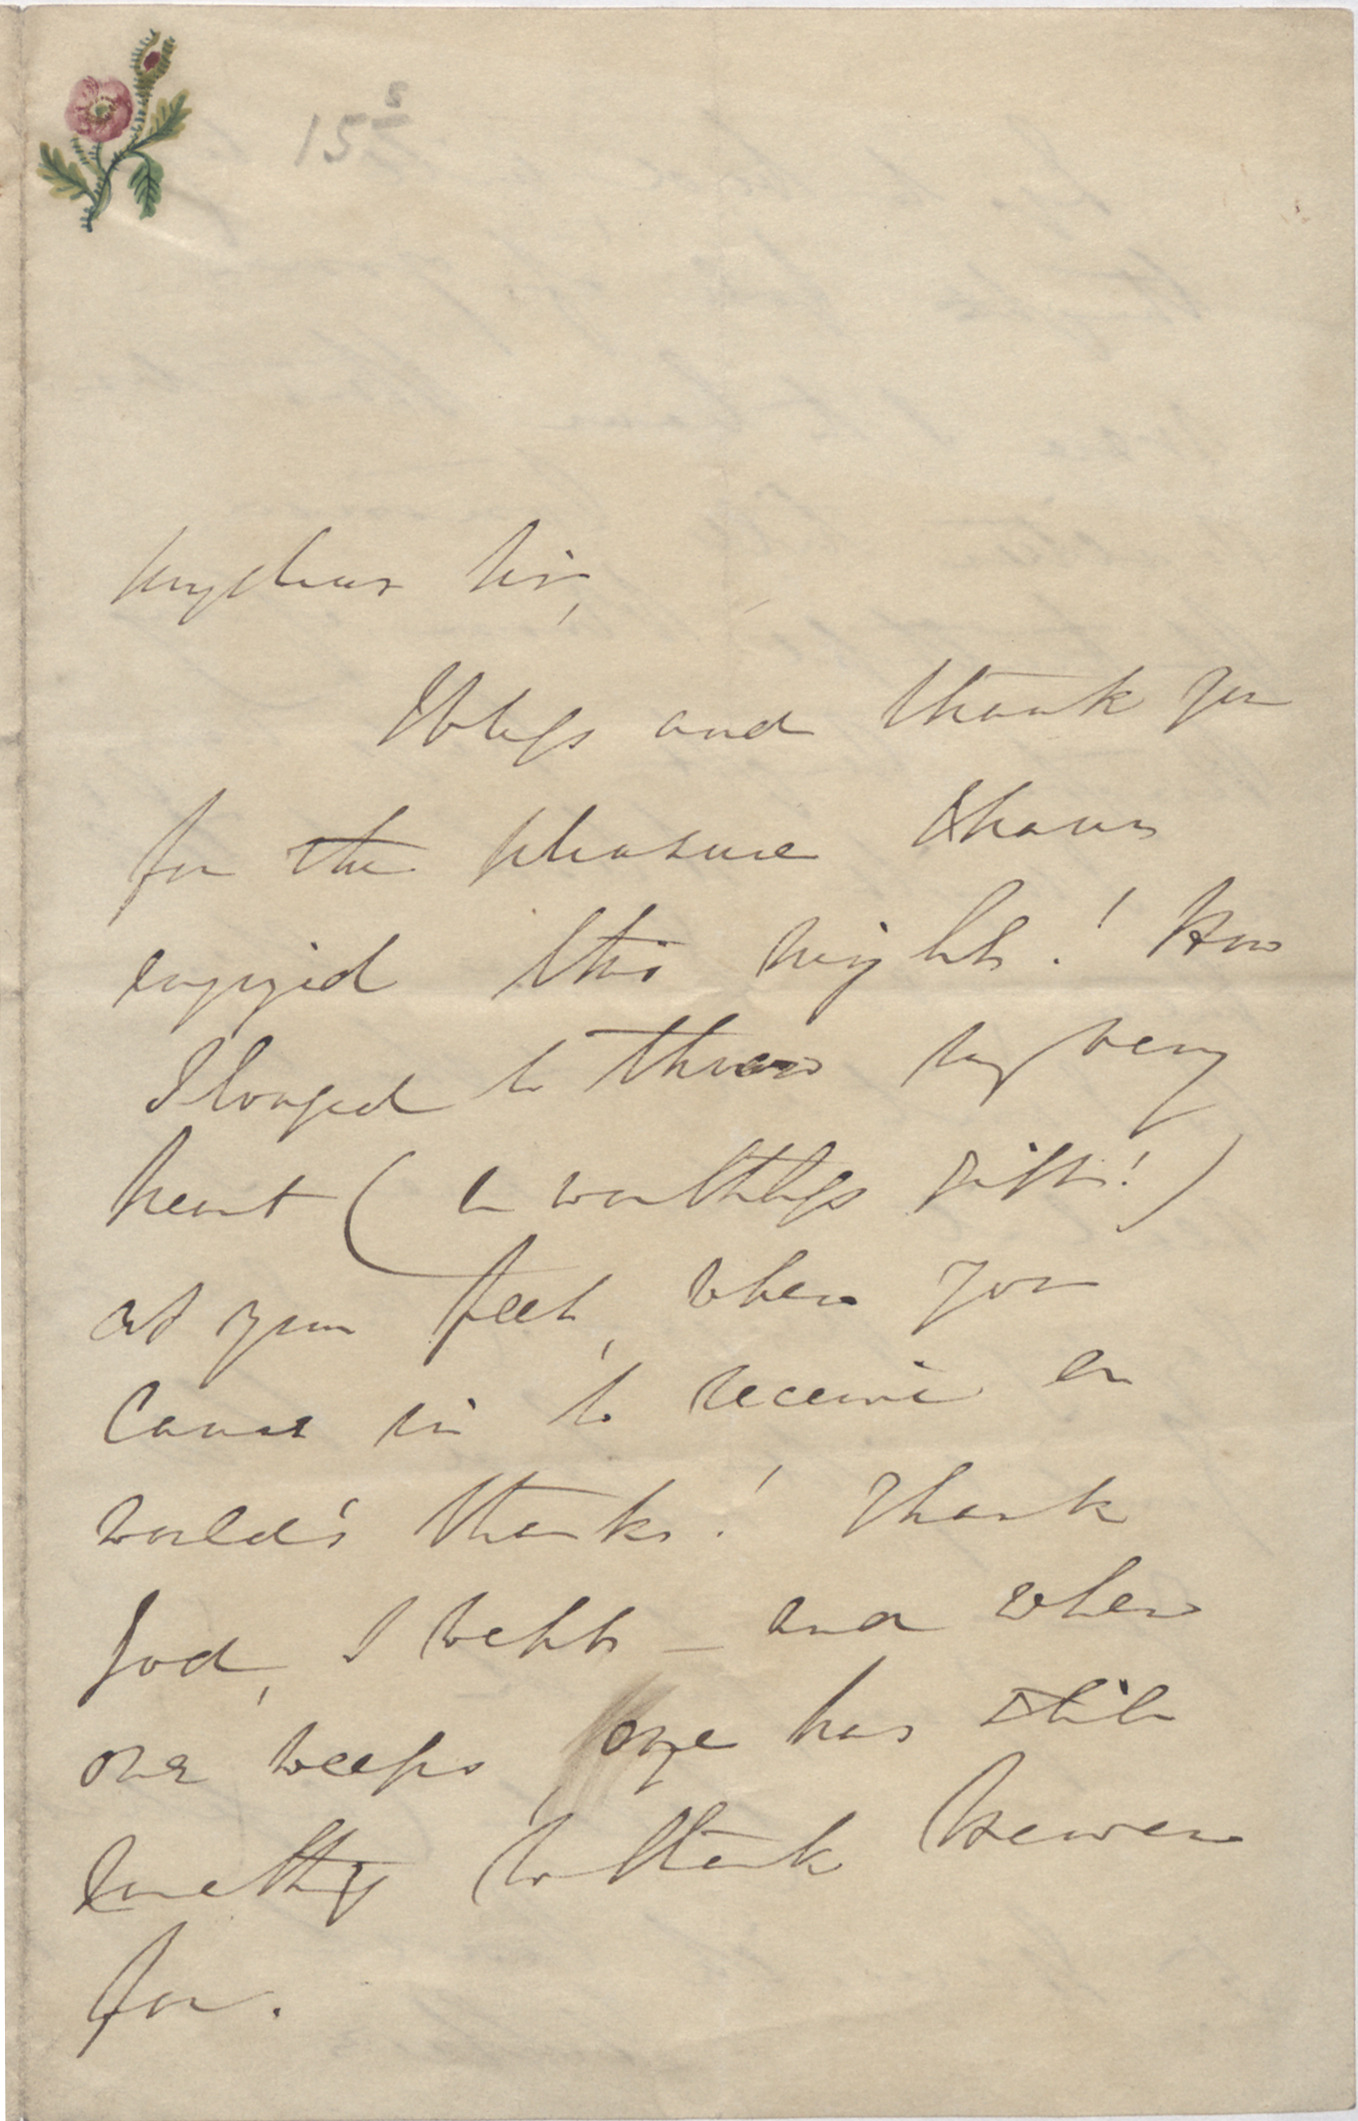 15 2
My dear Sir,
I bless and thank you
for the pleasure I have
enjoyed this night! How
I longed to throw my very
heart (a worthless gift!)
at your feet, when you
came in to receive a
world's thanks! Thank
God, I wept — and when
one weeps, one has still
to thank Heaven
for.